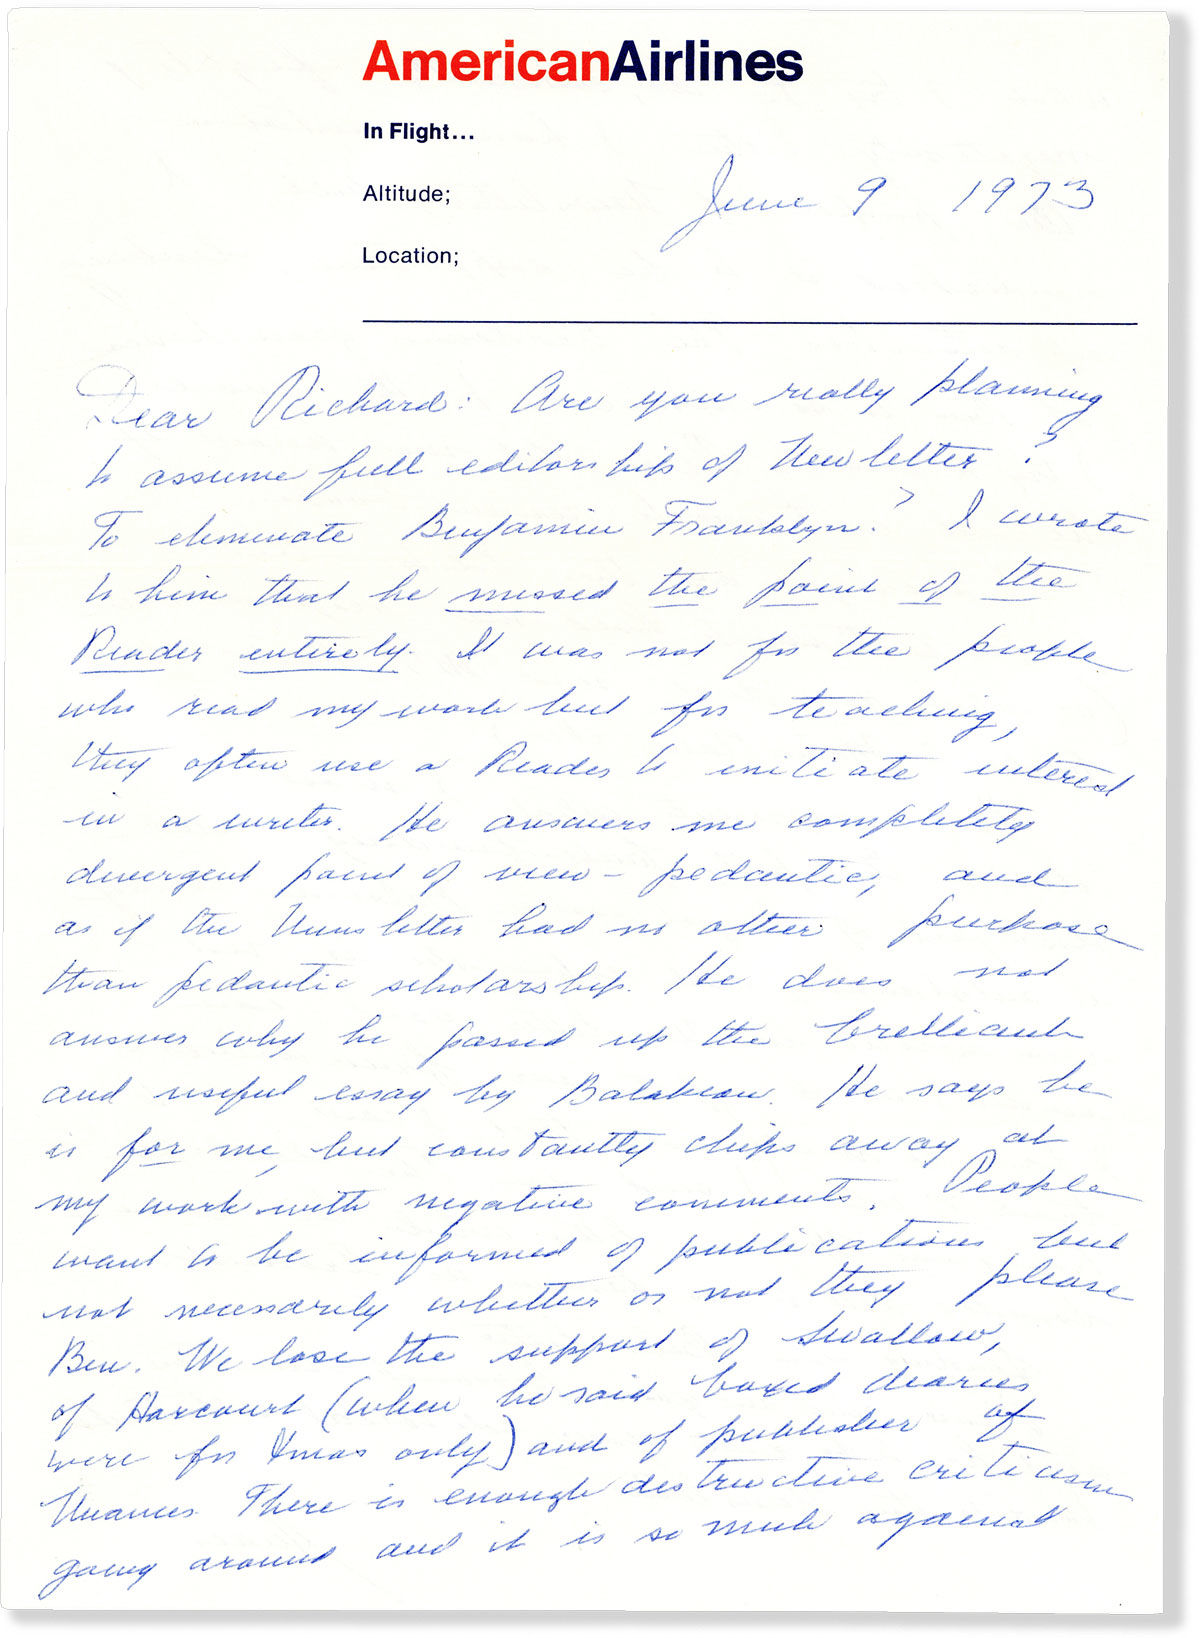 AmericanAirlines
In Flight...
Altitude;
June 9 1973
Location;
Dear Richard: Are you really planning
to assume full editorship of Newsletter?
To eliminate Benjamin Franklyn? I wrote
to him that he missed the point of the
Reader entirely. It was not for the people
who read my work but for teaching,
they often use a Reader to initiate interest
in a writer. He answers me completely
divergent point of view – pedantic, and
as if the Newsletter had no other purpose
than pedantic scholarship. He does not
answer why he passed up the brilliant
and useful essay by Balakian. He says he
is for me, but constantly chips away at
my work with negative comments. People
want to be informed of publications but
not necessarily whether or not they please
Ben. We lose the support of Swallow,
of Harcourt (when he said boxed diaries
were for Xmas only) and of publisher of
Nuances. There is enough destructive criticism
going around and it is so much against